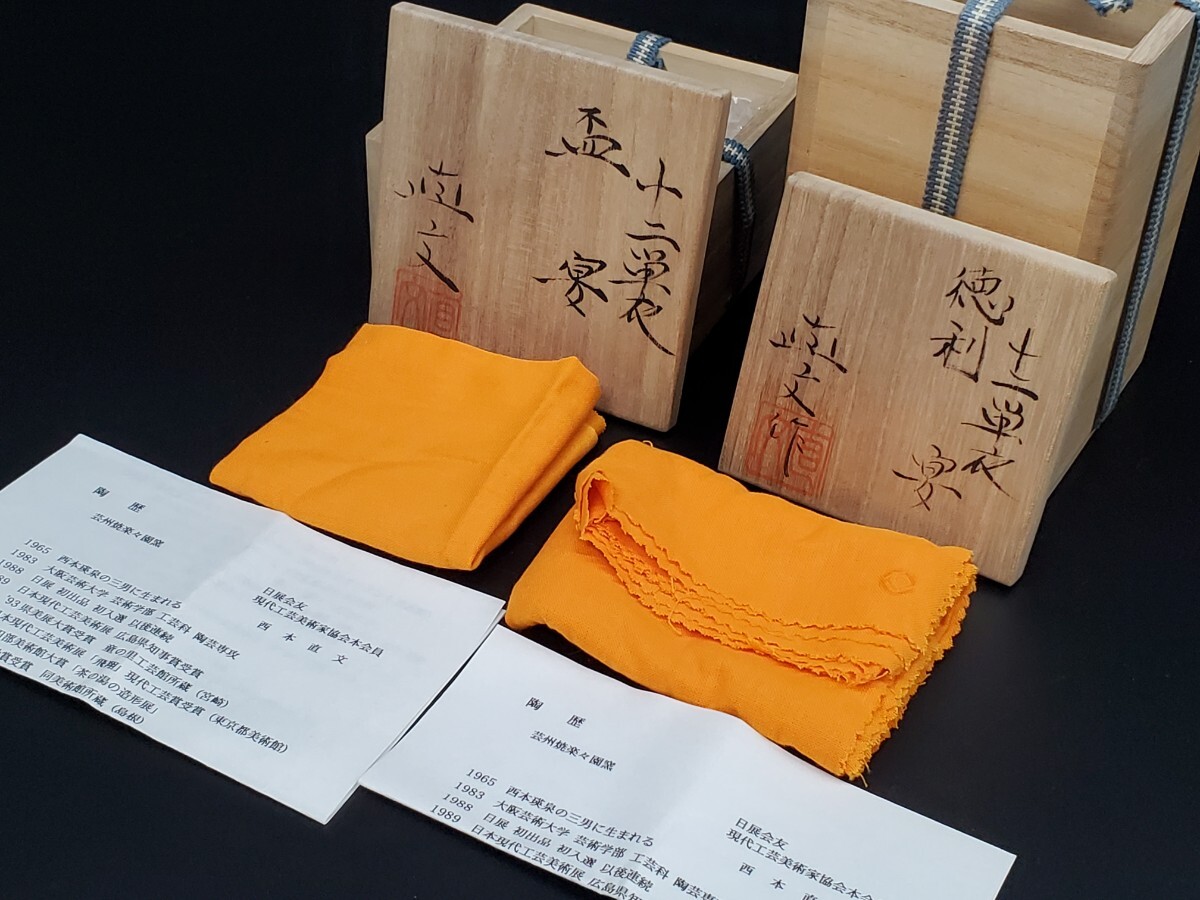 十二単衣
宴
盃
直文
十二単衣
宴
徳利
直文作
陶歴
芸州焼楽々園窯
日展会友
現代工芸美術家協会本会員
西本直文
1965 西本瑛泉の三男に生まれる
1983 大阪芸術大学 芸術学部 工芸科 陶芸専攻
1988 日展 初出品 初入選 以後連続
89 日本現代工芸美術展 広島県知事賞受賞
'93県美展大賞受賞 童の里工芸館所蔵(宮崎)
本現代工芸美術展「飛翔」現代工芸賞受賞(東京都美術館)
部美術館大賞「茶の湯の造形展」
賞受賞 同美術館所蔵(島根)
陶歴
芸州焼楽々園窯
日展会友
現代工芸美術家協会本会
西本直
1965 西本瑛泉の三男に生まれる
1983 大阪芸術大学 芸術学部 工芸科 陶芸専
1988 日展 初出品 初入選 以後連続
1989 日本現代工芸美術展 広島県知